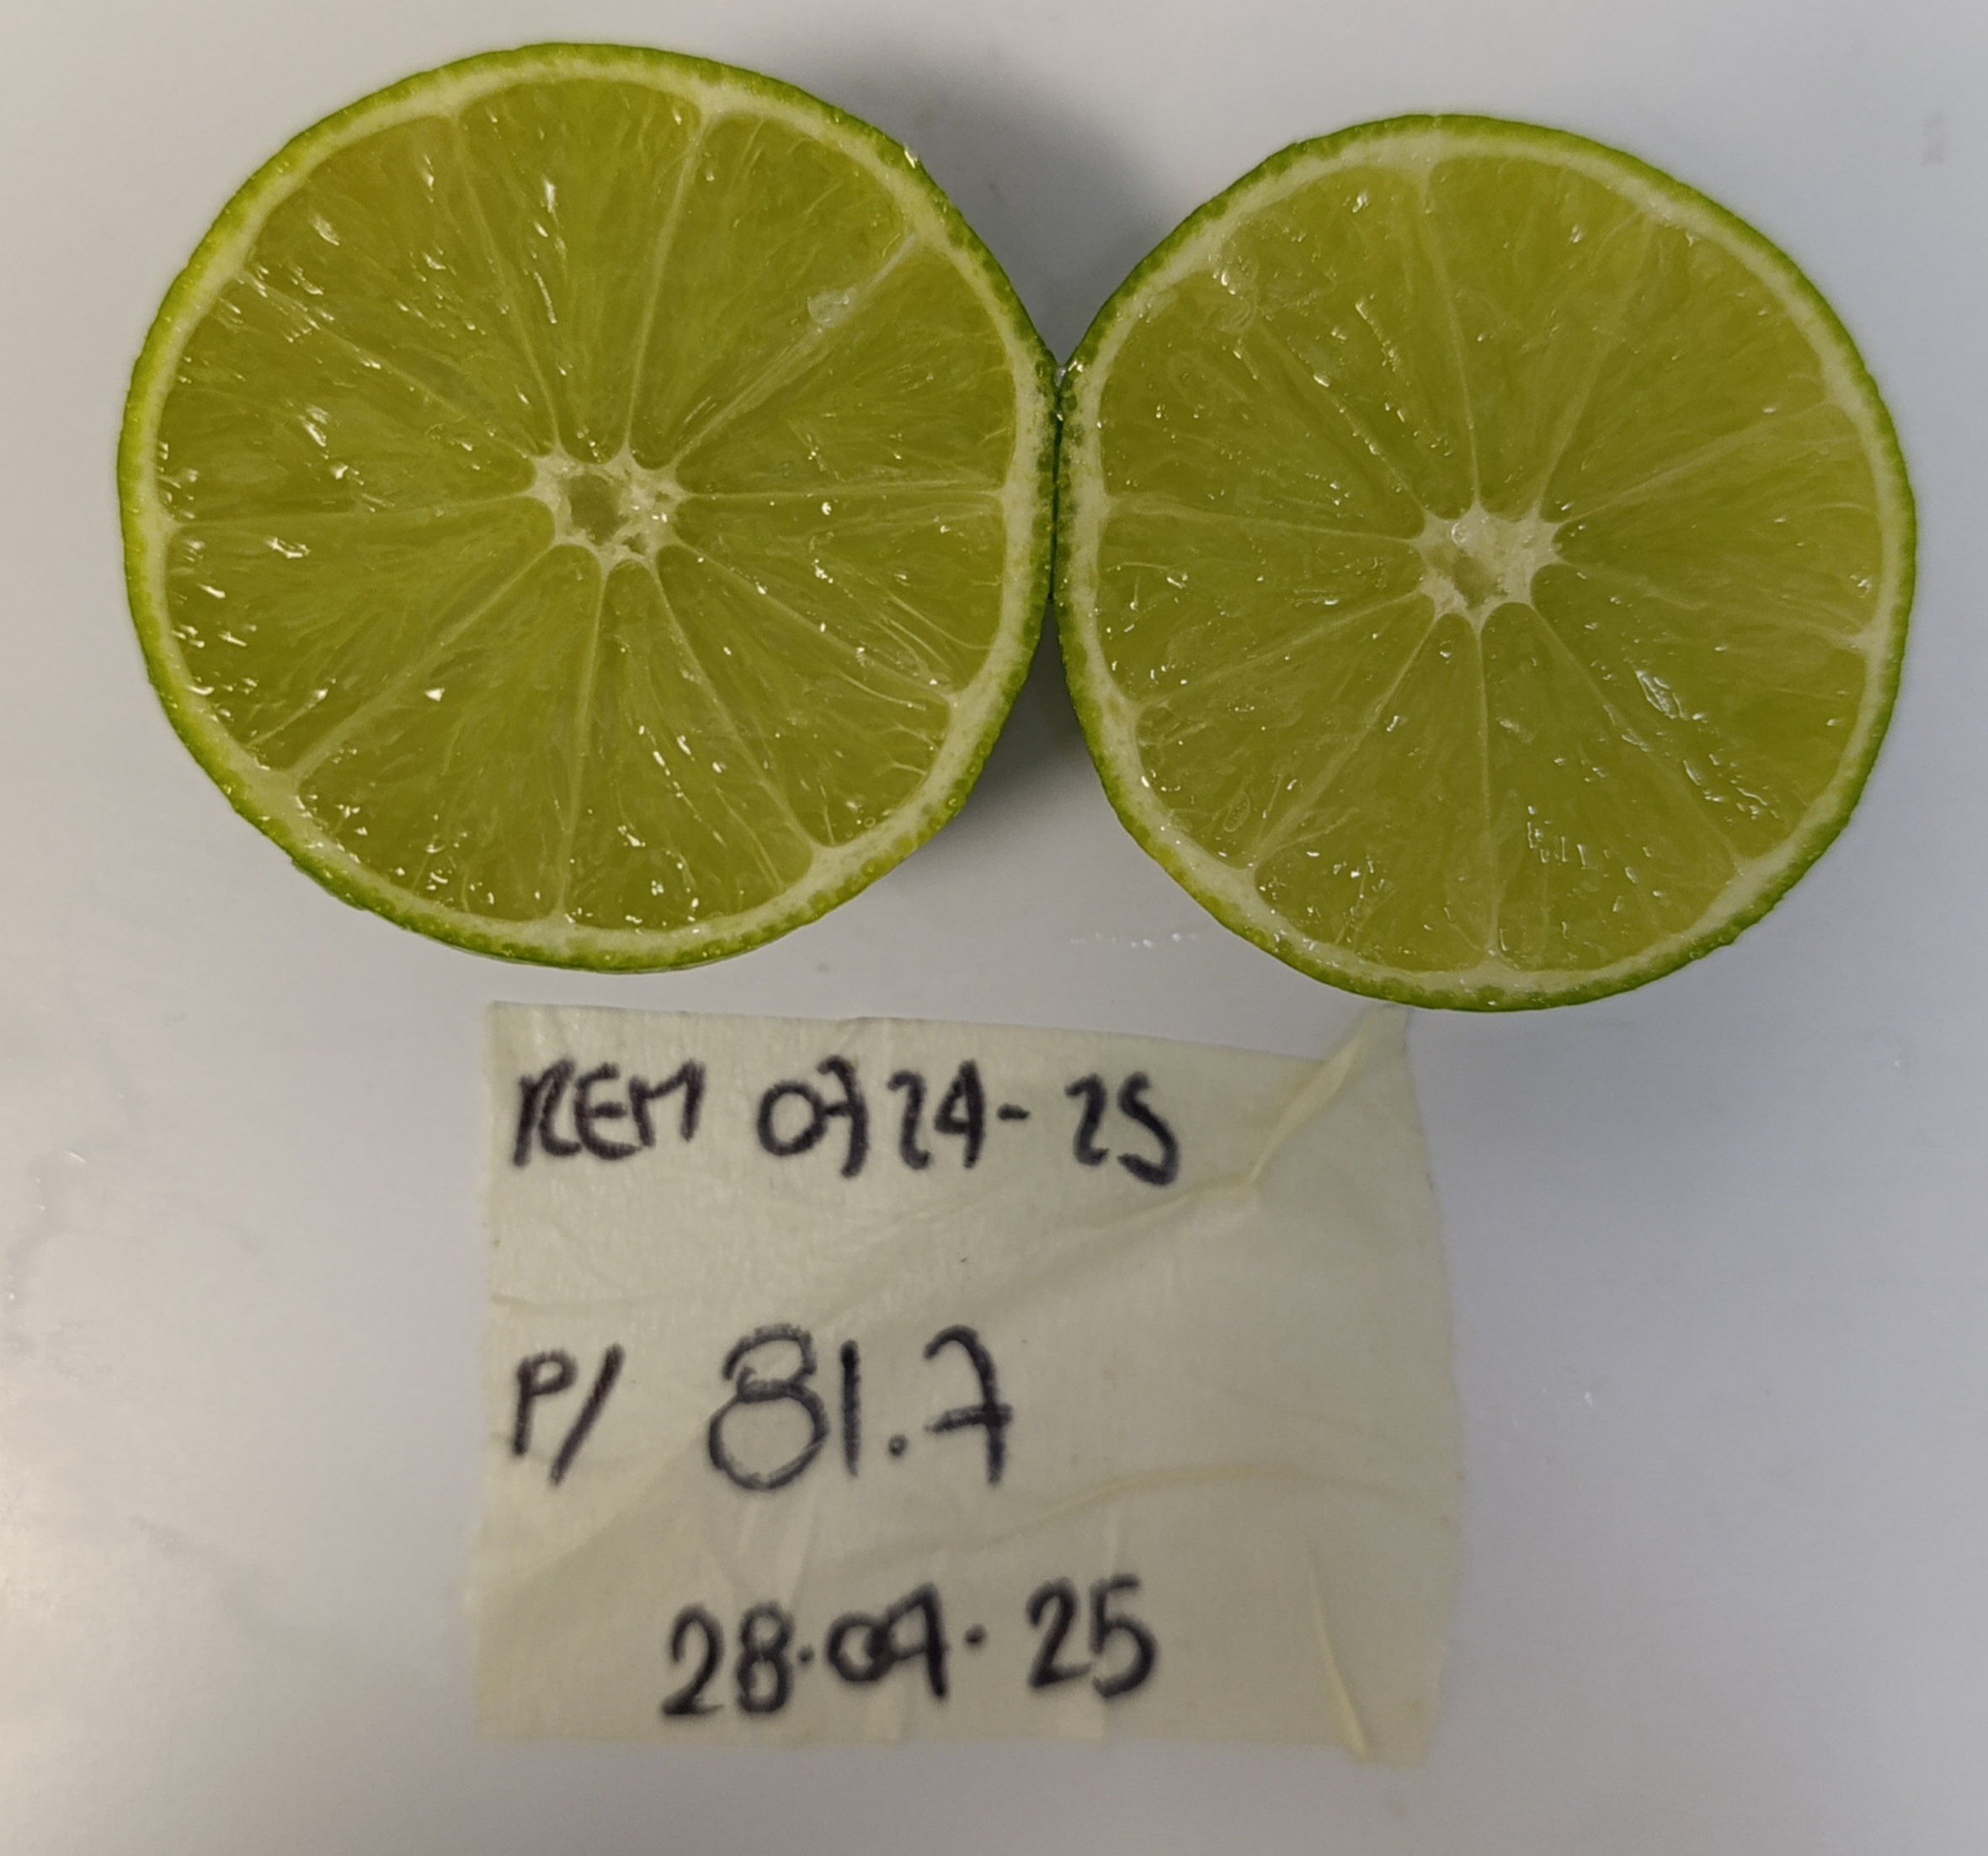 REM 0724-25
P/ 81.7
28.04.25